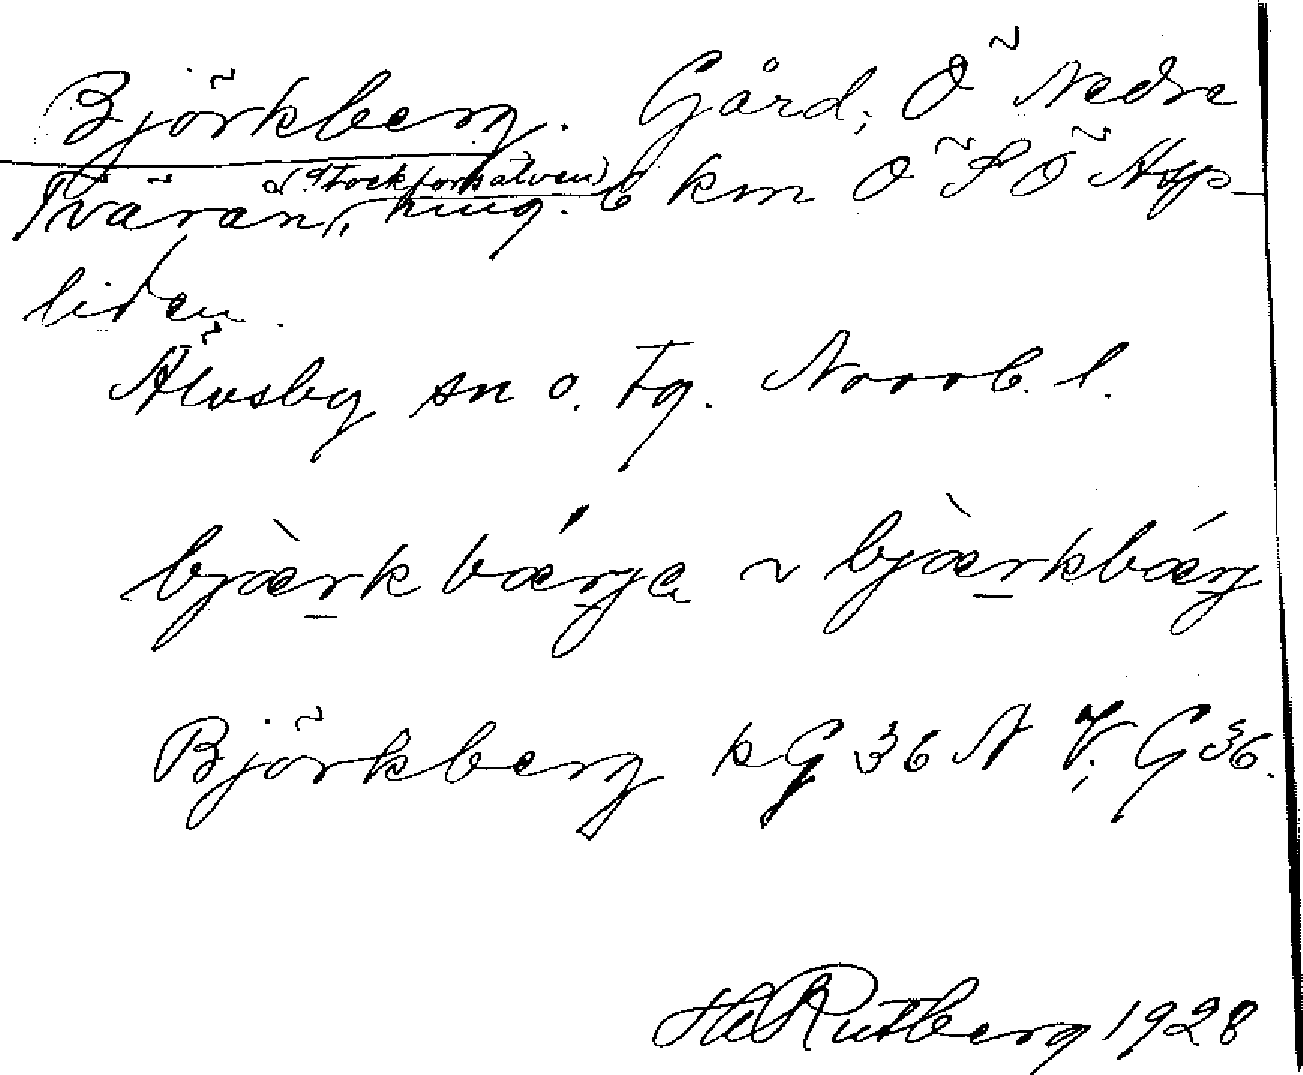 Björkberg. Gård, Ö Nedre
Tvärån (l. Stockforsälven), ung. 6 km Ö S Ö Asp-
liden.
Älvsby sn o. tg. Norrb. l.
bjæ̀rkbærga ~ bjæ̀rkbærg
Björkberg kG 36 N V, G 36.
H. Rutberg 1928